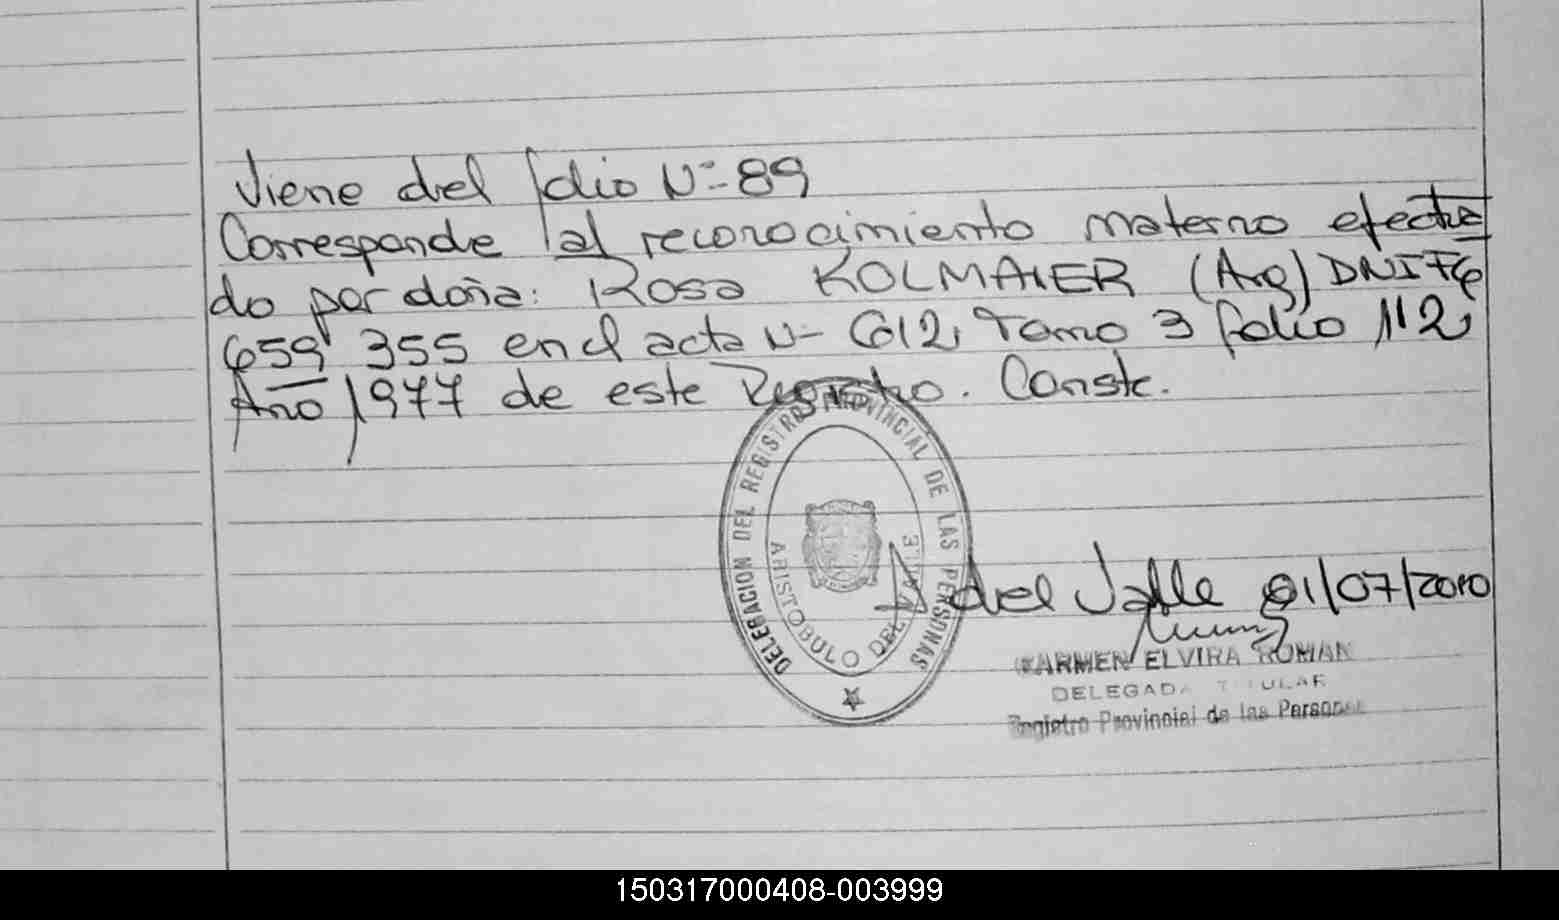 Viene del folio Nº 89
Corresponde al reconocimiento materno efectua
do por doña: Rosa KOLMAIER (Arg) DNI F6
659 355 en el acta Nº 612, Tomo 3 folio 112,
Año 1977 de este Registro. Conste.
DELEGACION DEL REGISTRO PROVINCIAL DE LAS PERSONAS
ARISTOBULO DEL VALLE
A del Valle 01/07/2010
CARMEN ELVIRA ROMAN
DELEGADA TITULAR
Registro Provincial de las Personas
150317000408-003999